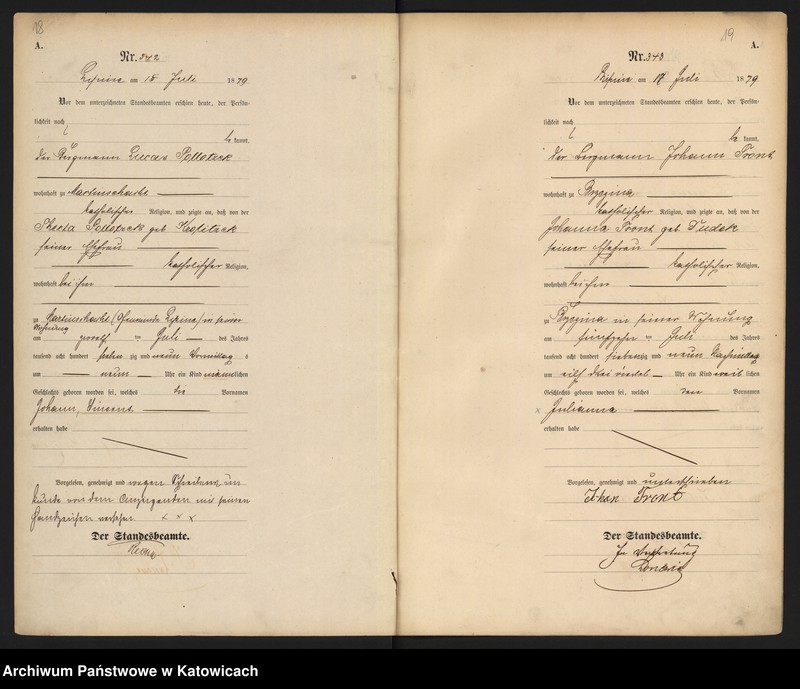 18
A.
Nr. 342
Lipine am 15 Juli 1879
Vor dem unterzeichneten Standesbeamten erschien heute, der Persön-
lichkeit nach
be kannt,
der Lucas Pollotzek
wohnhaft zu Martinschacht
katholischer Religion, und zeigte an, daß von der
geb
seiner Ehefrau
katholischer Religion,
wohnhaft bei ihm
zu Martinschacht, (Gemeinde Lipine) in seiner
Wohnung
am zwölf ten Juli des Jahres
tausend acht hundert sieben zig und neun Vormittag s
um neun Uhr ein Kind männlichen
Geschlechts geboren worden sei, welches die Vornamen
Johann, Vincent
erhalten habe
Vorgelesen, genehmigt und wegen Schreibens un
kunde von dem Anzeigenden mit seinen
Handzeichen versehen x x x
Der Standesbeamte.
19
A.
Nr. 343
Lipine am 17 Juli 1879
Vor dem unterzeichneten Standesbeamten erschien heute, der Persön-
lichkeit nach
be kannt,
der Bergmann Johann Front
wohnhaft zu
katholischer Religion, und zeigte an, daß von der
Johanna Front geb Dudek
seiner Ehefrau
katholischer Religion,
wohnhaft bei ihm
zu in seiner Wohnung
am fünfzehn ten Juli des Jahres
tausend acht hundert siebenzig und neun Nachmittag
um eilf drei viertel Uhr ein Kind weib lichen
Geschlechts geboren worden sei, welches den Vornamen
x Julianna
erhalten habe
Vorgelesen, genehmigt und unterschrieben
Johan Front
Der Standesbeamte.
In Vertretung
Archiwum Państwowe w Katowicach